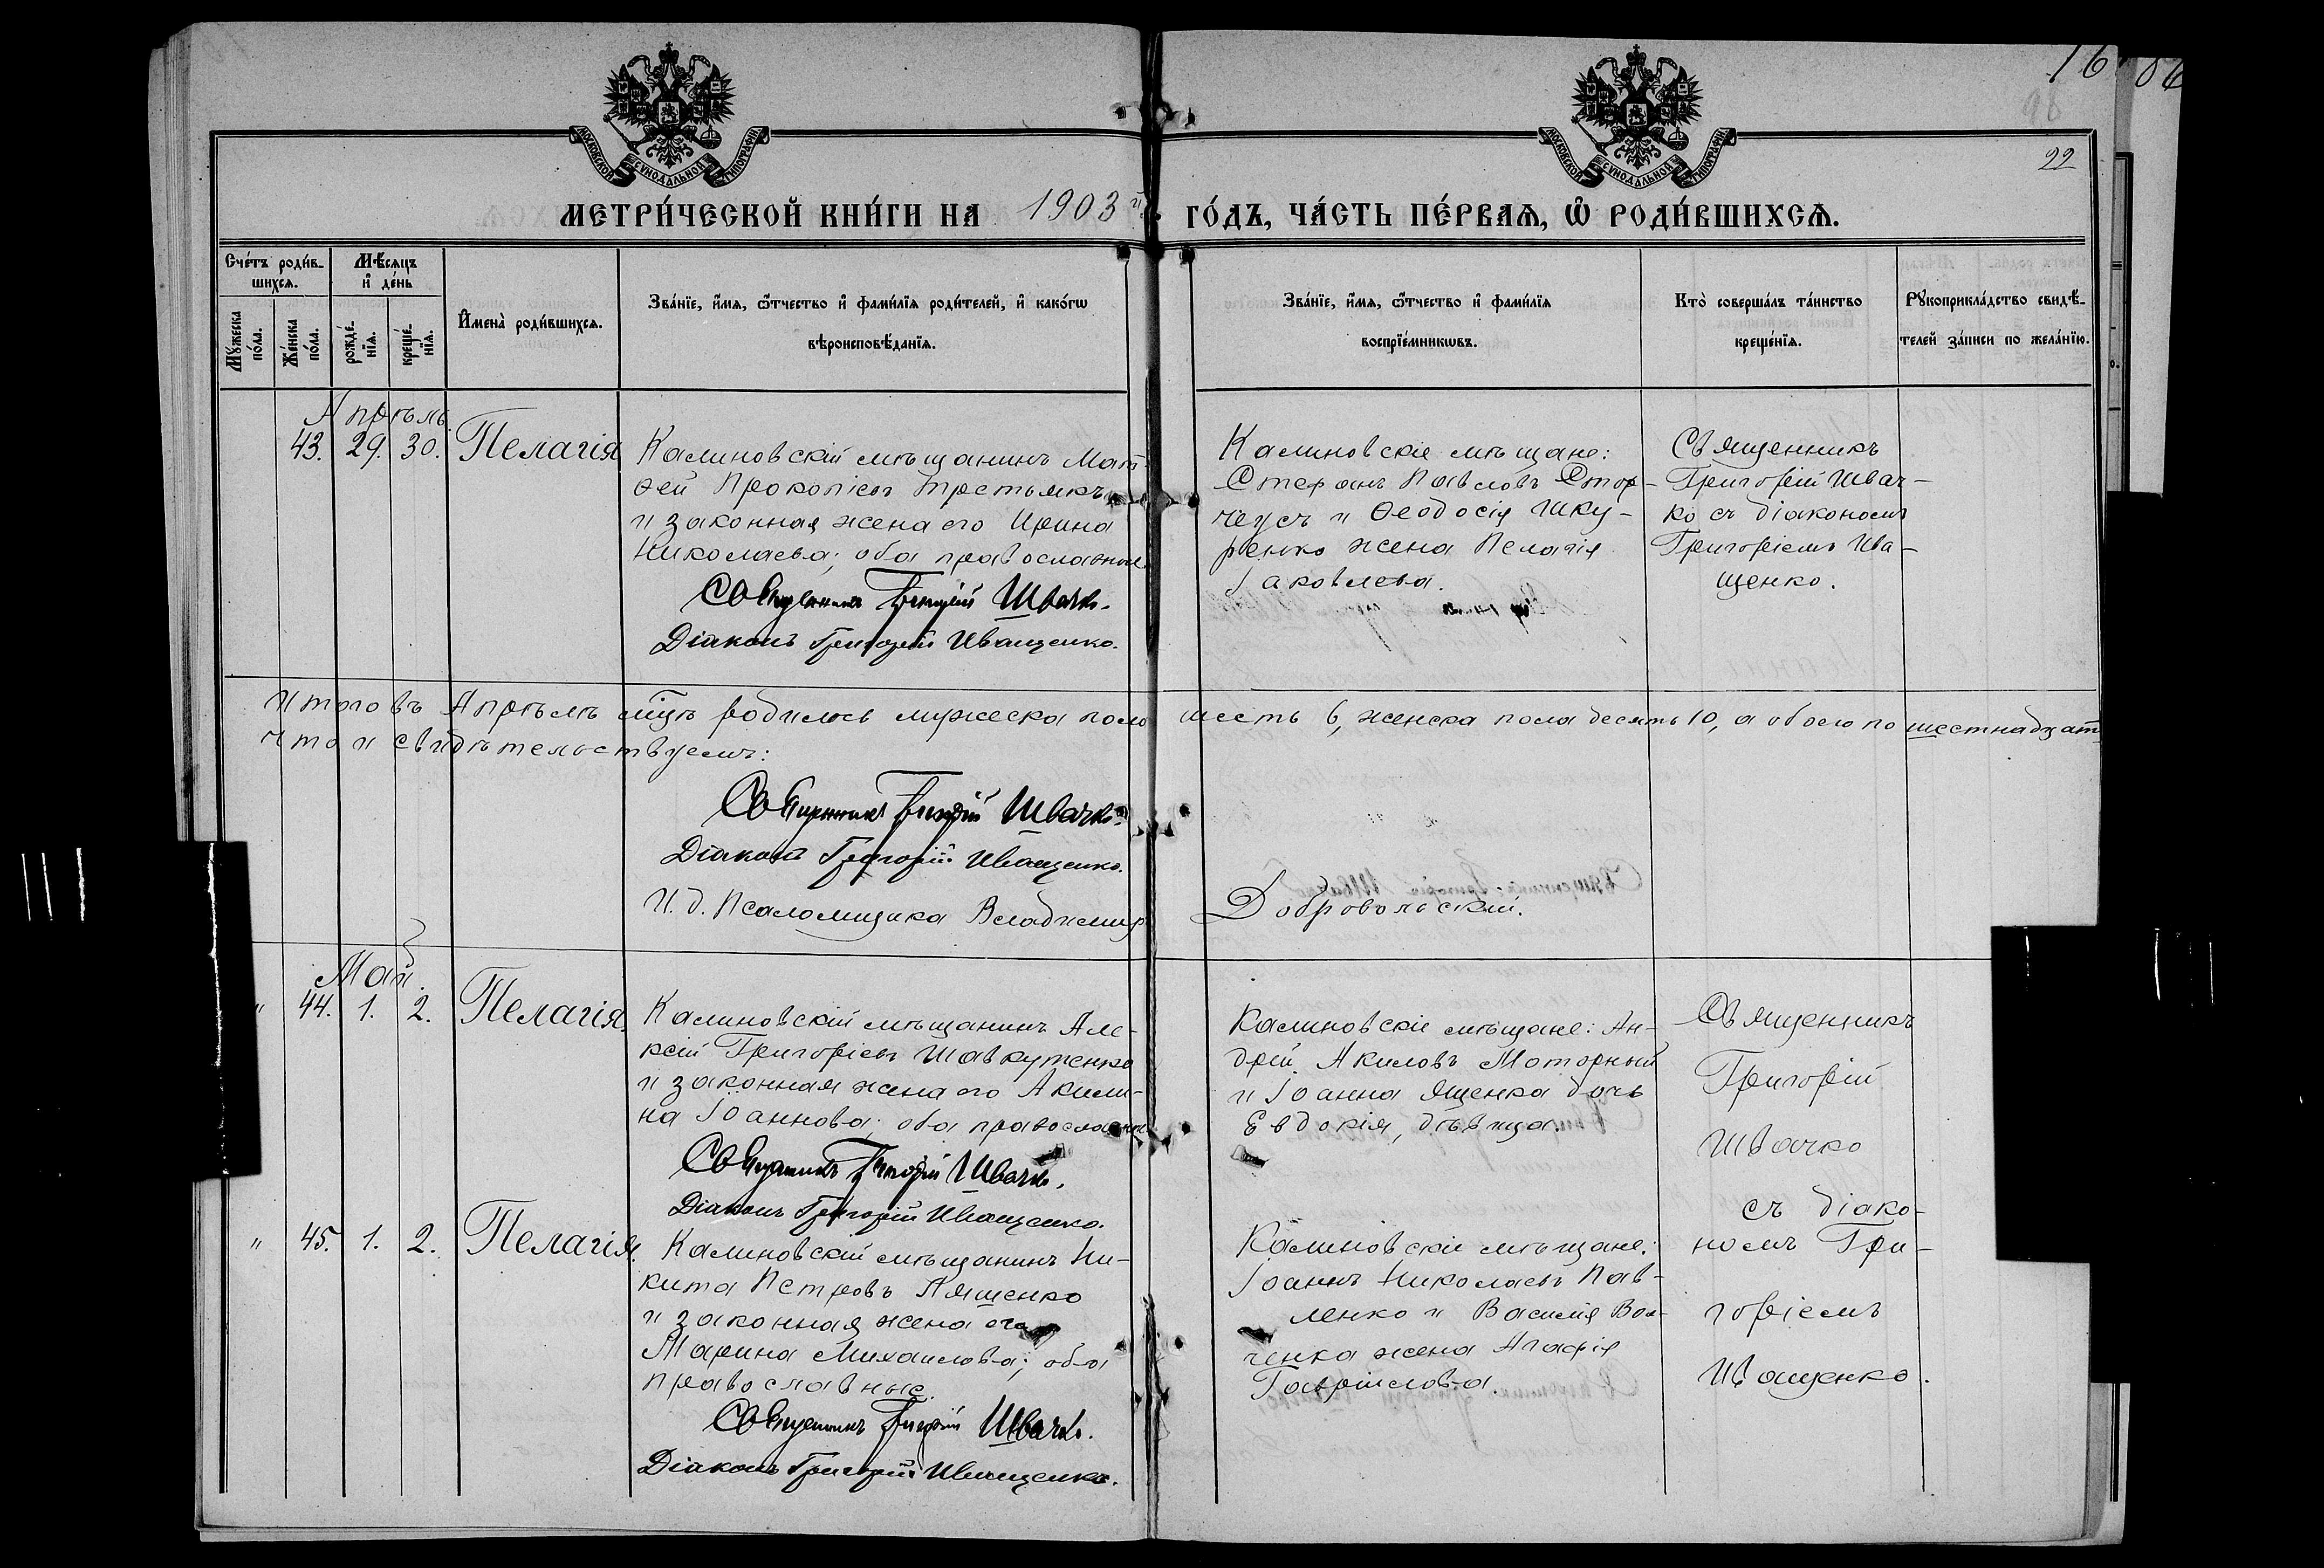 16
22
МОСКОВСКОЙ СѴНОДАЛЬНОЙ ТИПОГРАФІИ
МОСКОВСКОЙ СѴНОДАЛЬНОЙ ТИПОГРАФІИ
МЕТРИ́ЧЕСКОЙ КНИ́ГИ НА 1903 й ГО́ДЪ, ЧА́СТЬ ПЕ́РВАЯ, Ѡ҆ РОДИ́ВШИХСЯ.
Сче́тъ роди́в-
шихся.
Мꙋ́жеска по́ла.
Же́нска по́ла.
Мѣ́сяцъ
и҆ де́нь
рожде́нїя.
креще́нїя.
И҆мена̀ роди́вшихся.
Зва́нїе, и҆́мя, ѻ҆́тчество и҆ фами́лїя роди́телей, и҆ како́гѡ
вѣроисповѣ́данїя.
Зва́нїе, и҆́мя, ѻ҆́тчество и҆ фами́лїя
воспрїе́мникѡвъ.
Кто̀ соверша́лъ та́инство
креще́нїя.
Рꙋкоприкла́дство свидѣ́-
телей за́писи по жела́нїю.
Апрѣль.
43. 29. 30. Пелагія
Калиновскій мѣщанинъ Мат-
ѳей Прокопіевъ Третьякъ
и законная жена его Ирина
Николаева; оба православные
Священникъ Григорій Швачко.
Діаконъ Григорій Иващенко.
Калиновскіе мѣщане:
Стефанъ Павловъ Стор-
чеусъ и Ѳеодосія Шку-
ренко жена Пелагія
Іаковлева.
Священникъ
Григорій Швач-
ко съ діакономъ
Григоріемъ Ива-
щенко.
Итого въ Апрѣлѣ мцѣ родилось мужеска пола шесть 6, женска пола десять 10, а обоего по шестнадцат
что и свидѣтельствуемъ:
Священникъ Григорій Швачко.
Діаконъ Григорій Иващенко.
И. д. Псаломщика Владимир Добровольскій.
Май.
" 44. 1. 2. Пелагія
Калиновскій мѣщанинъ Але-
ксій Григоріевъ Шавкутенко
и законная жена его Акили-
на Іоаннова; оба православн
Священникъ Григорій Швачко.
Діаконъ Григорій Иващенко.
Калиновскіе мѣщане: Ан-
дрей Акиловъ Моторный
и Іоанна Ященка дочь
Евдокія, дѣвица.
Священникъ
Григорій
Швачко
съ діако-
номъ Гри-
горіемъ
Иващенко.
" 45. 1. 2. Пелагія.
Калиновскій мѣщанинъ Ни-
кита Петровъ Ляшенко
и законная жена его
Марина Михаилова; оба
православные.
Священникъ Григорій Швачко.
Діаконъ Григорій Иващенко.
Калиновскіе мѣщане:
Іоаннъ Николаевъ Пав-
ленко и Василія Вол-
ченка жена Агафія
Гавріилова.